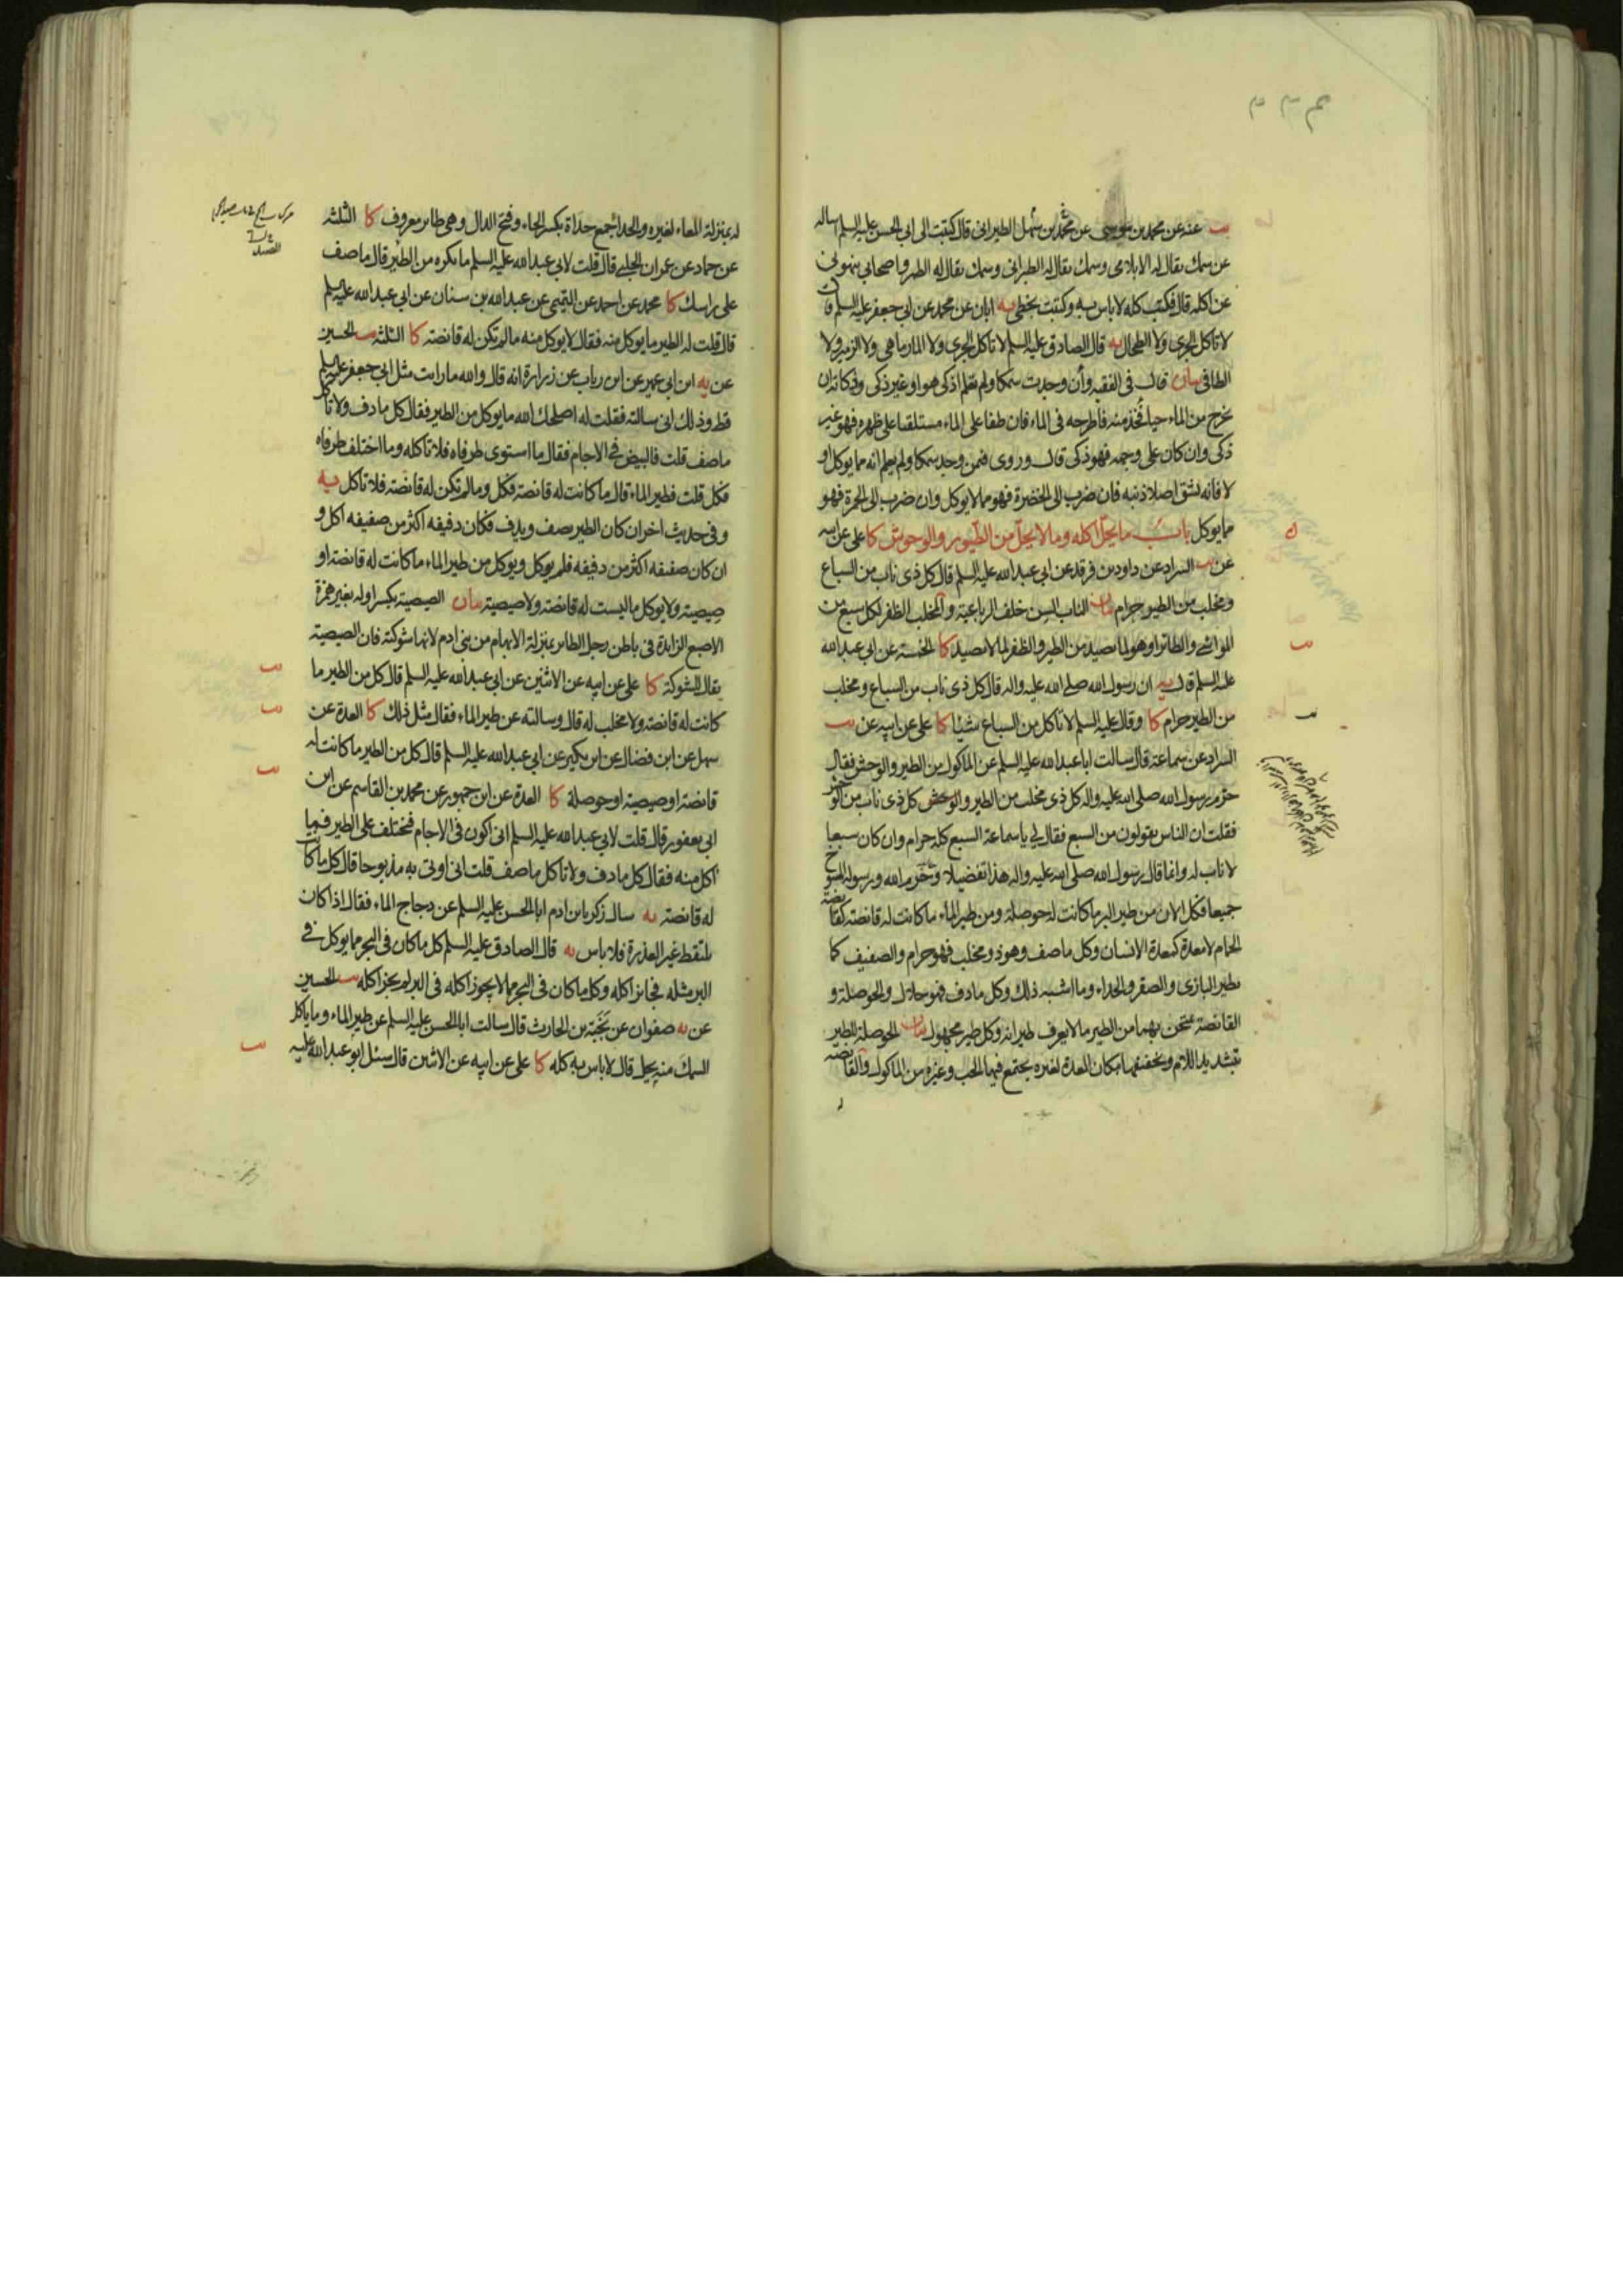 يب عنه عن محمد بن موسى عن محمد بن سهل الطبرانى قال كتبت الى ابى الحسن عليه السلم اساله
عن سمك يقال له الابلامى وسمك يقال له الطبرانى وسمك يقال له الطمر واصحابى ينهونى
عن اكله قال فكتب كله لا باس به وكتبت بخطى يه ابان عن محمد عن ابى جعفر عليه السلم قال
لا تاكل الجرى ولا الطحال يه قال الصادق عليه السلم لا تاكل الجرى ولا المارماهى ولا الزمير ولا
الطافى بيان قال فى الفقيه وان وجدت سمكا ولم تعلم اذكى هو او غير ذكى وذكاته ان
يخرج من الماء حيا فخذ منه فاطرحه فى الماء فان طفا على الماء مستلقيا على ظهره فهو غير
ذكى وان كان على وجهه فهو ذكى قال وروى فمن وجد سمكا ولم يعلم انه مما يوكل او
لا فانه يشق اصل ذنبه فان ضرب الى الخضرة فهو مما لا يوكل وان ضرب الى الحمرة فهو
مما يوكل باب ما يحل اكله وما لا يحل من الطيور والوحوش كا على عن ابيه
عن يب السراد عن داود بن فرقد عن ابى عبد الله عليه السلم قال كل ذى ناب من السباع
ومخلب من الطيور حرام بيان الناب السن خلف الرباعية والمخلب الظفر لكل سبع من
المواشى والطائر او هو لما يصيد من الطير والظفر لما لا يصيد كا الخمسة عن ابى عبد الله
عليه السلم قال يه ان رسول الله صلى الله عليه واله قال كل ذى ناب من السباع ومخلب
من الطير حرام كا وقال عليه السلم لا تاكل من السباع شيئا كا على عن ابيه عن يب
السراد عن سماعة قال سالت ابا عبد الله عليه السلم عن الماكول من الطير والوحش فقال
حرم رسول الله صلى الله عليه واله كل ذى مخلب من الطير والوحش كل ذى ناب من الوحش
فقلت ان الناس يقولون من السبع فقال لى يا سماعة السبع كله حرام وان كان سبعا
لا ناب له وانما قال رسول الله صلى الله عليه واله هذا تفضيلا وحرم الله ورسوله المسوخ
جميعا فكل الان من طير البر ما كانت له حوصلة ومن طير الماء ما كانت له قانصة كقانصة
الحمام لا معدة كمعدة الانسان وكل ما صف وهو ذو مخلب فهو حرام والصفيف كما
يطير البازى والصقر والحداء وما اشبه ذلك وكل ما دف فهو حلال والحوصلة و
القانصة يمتحن بهما من الطير ما لا يعرف طيرانه وكل طير مجهول بيان الحوصلة للطير
بتشديد اللام وتخفيفها مكان المعدة لغيره يجتمع فيها الحب وغيره من الماكول والقانصة
له بمنزلة المعاء لغيره والحداء جمع حداة بكسر الحاء وفتح الدال وهى طاير معروف كا الثلثة
عن حماد عن عمران الحلبى قال قلت لابى عبد الله عليه السلم ما يكره من الطير قال ما صف
على راسك كا محمد عن احمد عن التميمى عن عبد الله بن سنان عن ابى عبد الله عليه السلم
قال قلت له الطير ما يوكل منه فقال لا يوكل منه ما لم تكن له قانصة كا الثلثة يب الحسين
عن يه ابن ابى عمير عن ابن رياب عن زرارة انه قال والله ما رايت مثل ابى جعفر عليه السلم
قط وذلك انى سالته فقلت له اصلحك الله ما يوكل من الطير فقال كل ما دف ولا تاكل
ما صف قلت فالبيض فى الاجام فقال ما استوى طرفاه فلا تاكله وما اختلف طرفاه
فكل قلت فطير الماء قال ما كانت له قانصة فكل وما لم تكن له قانصة فلا تاكل يه
وفى حديث اخر ان كان الطير يصف ويدف فكان دفيفه اكثر من صفيفه اكل و
ان كان صفيفه اكثر من دفيفه فلم يوكل ويوكل من طير الماء ما كانت له قانصة او
صيصية ولا يوكل ما ليست له قانصة ولا صيصية بيان الصيصية بكسر اوله بغير همزة
الاصبع الزايدة فى باطن رجل الطاير بمنزلة الابهام من بنى ادم لانها شوكته فان الصيصية
يقال للشوكة كا على عن ابيه عن الاثنين عن ابى عبد الله عليه السلم قال كل من الطير ما
كانت له قانصة ولا مخلب له قال وسالته عن طير الماء فقال مثل ذلك كا العدة عن
سهل عن ابن فضال عن ابن بكير عن ابى عبد الله عليه السلم قال كل من الطير ما كانت له
قانصة او صيصية او حوصلة كا العدة عن ابن جمهور عن محمد بن القاسم عن ابن
ابى يعفور قال قلت لابى عبد الله عليه السلم انى اكون فى الاجام فيختلف على الطير فما
اكل منه فقال كل ما دف ولا تاكل ما صف قلت انى اوتى به مذبوحا قال كل ما كانت
له قانصة يه سال زكريا بن ادم ابا الحسن عليه السلم عن دجاج الماء فقال اذا كان
يلتقط غير العذرة فلا باس يه قال الصادق عليه السلم كل ما كان فى البحر مما يوكل فى
البر مثله فجائز اكله وكل ما كان فى البحر مما لا يجوز اكله فى البر لم يجز اكله يب الحسين
عن يه صفوان عن نجية بن الحارث قال سالت ابا الحسن عليه السلم عن طير الماء وما ياكل
السمك منه يحل قال لا باس به كله كا على عن ابيه عن الاثنين قال سئل ابو عبد الله عليه